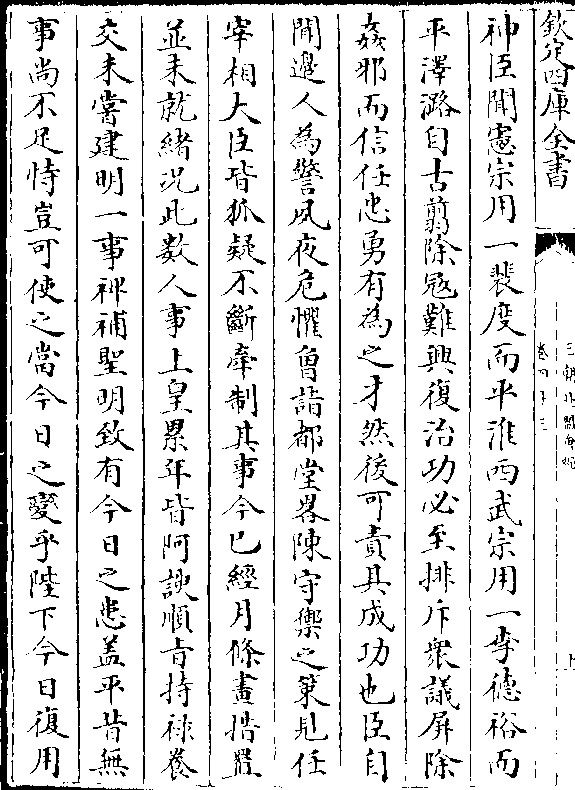 欽定四庫全書
神臣聞憲宗用一裴度而平淮西武宗用一李德裕而
平澤潞自古翦除寇難興復治功必至排斥衆議屏除
姦邪而信任忠勇有為之才然後可責具成功也臣自
聞邊人為警夙夜危懼曾詣都堂畧陳守禦之策見任
宰相大臣皆狐疑不斷牽制其事今已經月條畫措置
並未就緒况此數人事上皇累年皆阿諛順㫖持禄養
交未嘗建明一事裨補聖明致有今日之患盖平昔無
事尚不足恃豈可使之當今日之變乎陛下今日復用